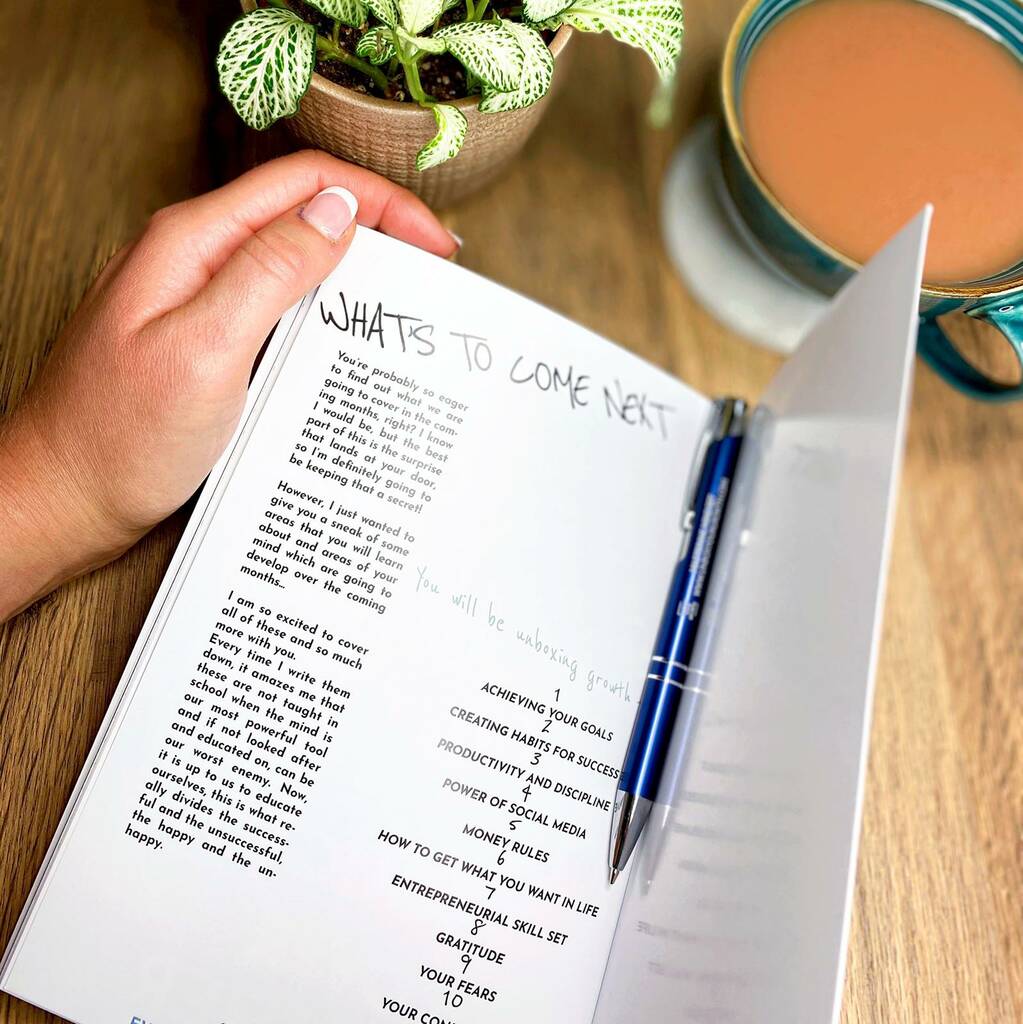 WHAT'S TO COME NEXT
You're probably so eager
to find out what we are
going to cover in the com-
ing months, right? I know
I would be, but the best
part of this is the surprise
that lands at your door,
so I'm definitely going to
be keeping that a secret!
However, I just wanted to
give you a sneak of some
areas that you will learn
about and areas of your
mind which are going to
develop over the coming
months...
I am so excited to cover
all of these and so much
more with you.
Every time I write them
down, it amazes me that
these are not taught in
school when the mind is
our most powerful tool
and if not looked after
and educated on, can be
our worst enemy. Now,
it is up to us to educate
ourselves, this is what re-
ally divides the success-
ful and the unsuccessful,
the happy and the un-
happy.
You will be unboxing growth
1
ACHIEVING YOUR GOALS
2
CREATING HABITS FOR SUCCESS
3
PRODUCTIVITY AND DISCIPLINE
4
POWER OF SOCIAL MEDIA
5
MONEY RULES
6
HOW TO GET WHAT YOU WANT IN LIFE
7
ENTREPRENEURIAL SKILL SET
8
GRATITUDE
9
YOUR FEARS
10
YOUR